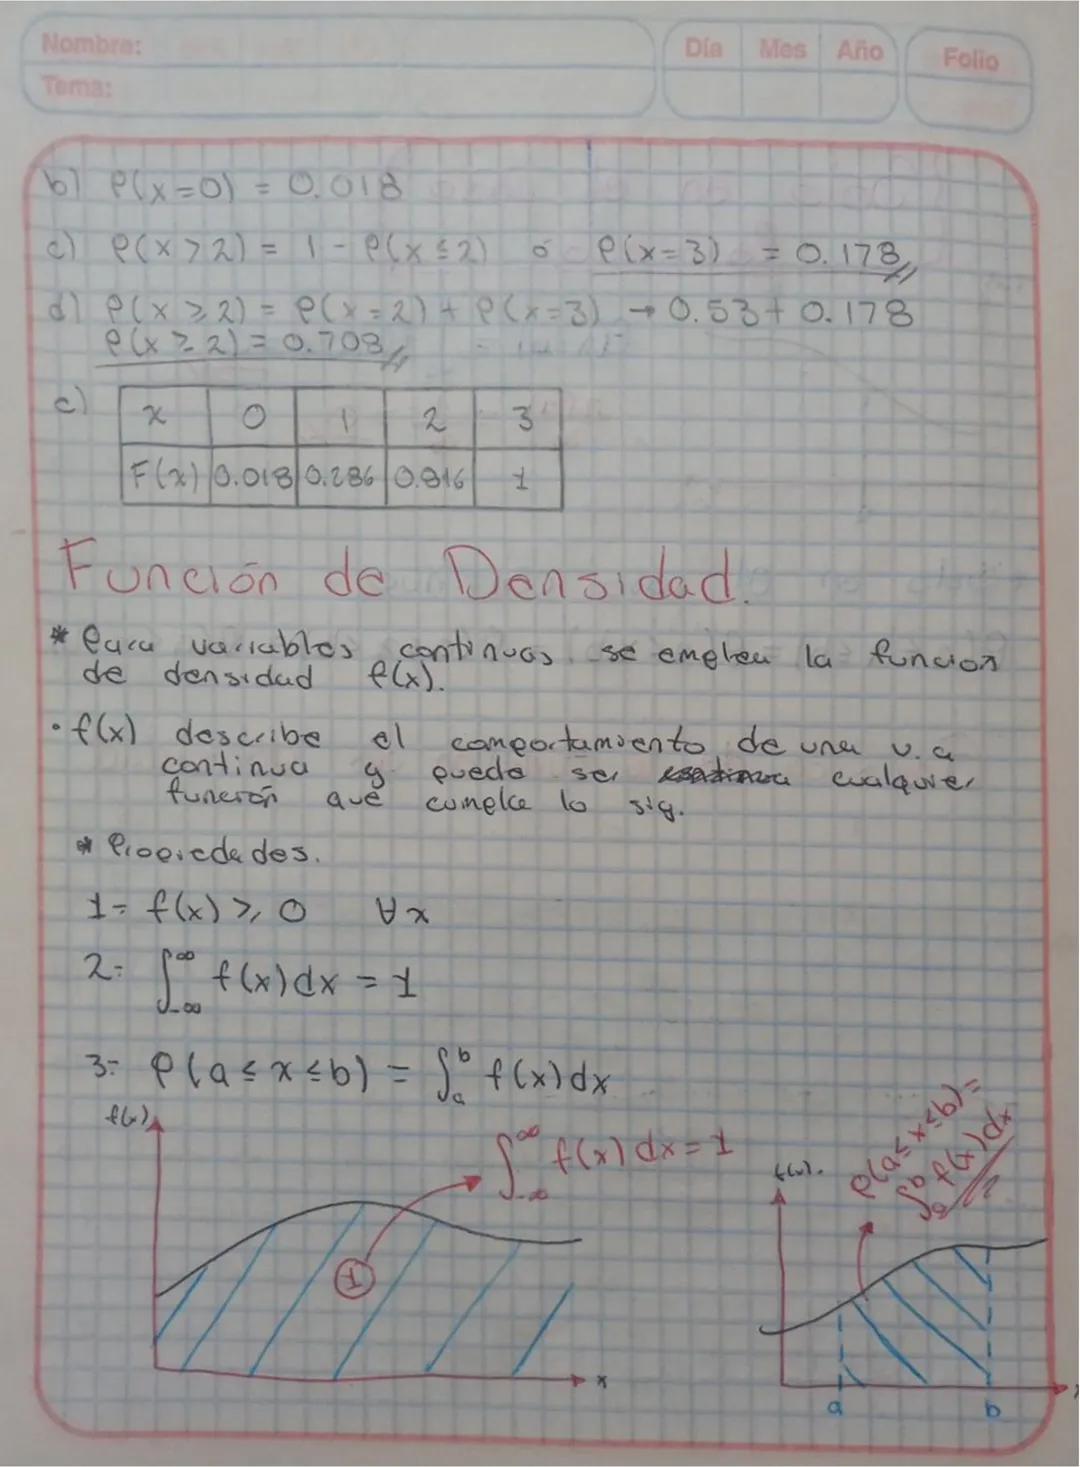 Nombre:
Tema:
Día Mes Año
Folio
b) P(x=0) = 0.018
c) P(x>2) = 1 - P(x≤2) ó P(x=3) = 0.178
d) P(x≥2) = P(x=2) + P(x=3) → 0.53 + 0.178
P(x≥2) = 0.708
c) x 0 1 2 3
F(x) 0.018 0.286 0.816 1
Función de Densidad.
* Para variables continuas se emplea la función
de densidad f(x).
• f(x) describe el comportamiento de una v.a
continua y puede ser cualquier
función que cumpla lo sig.
* Propiedades.
1- f(x) ≥ 0 ∀x
2- ∫_{-∞}^{∞} f(x)dx = 1
3- P(a≤x≤b) = ∫_a^b f(x)dx
f(x)
∫_{-∞}^{∞} f(x)dx = 1
1
x
f(x).
P(a≤x≤b) =
∫_a^b f(x)dx
a b